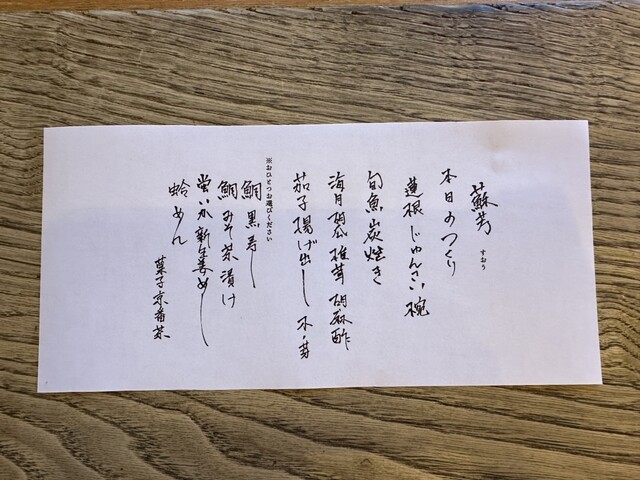 蘇芳
すおう
本日のつくり
蓮根じゅんさい椀
旬魚炭焼き
海月胡瓜椎茸胡麻酢
茄子揚げ出し 木ノ芽
※おひとつお選びください
鯛黒寿し
鯛みそ茶漬け
蛍いか新生姜めし
蛤めん
菓子京番茶